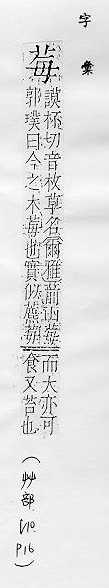 字彙
莓
謨杯切音枚草名爾雅葥山莓
郭璞曰今之木莓也實似藨莓
而大亦可
食又苔也
(艸部 V10 P16)